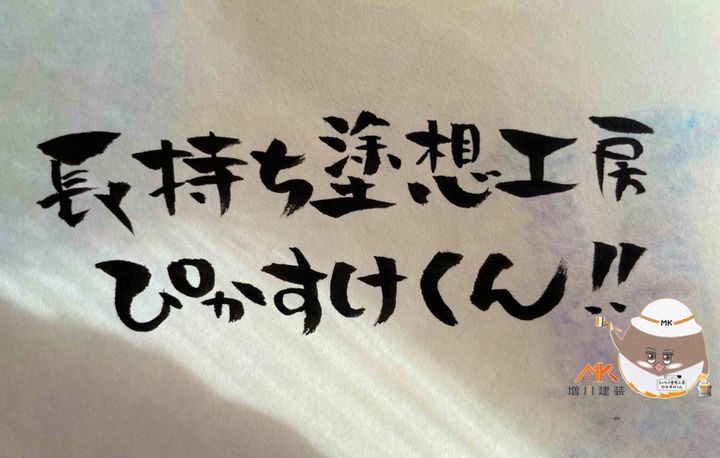 長持ち塗想工房
ぴかすけくん!!
MK
MK
増川建装